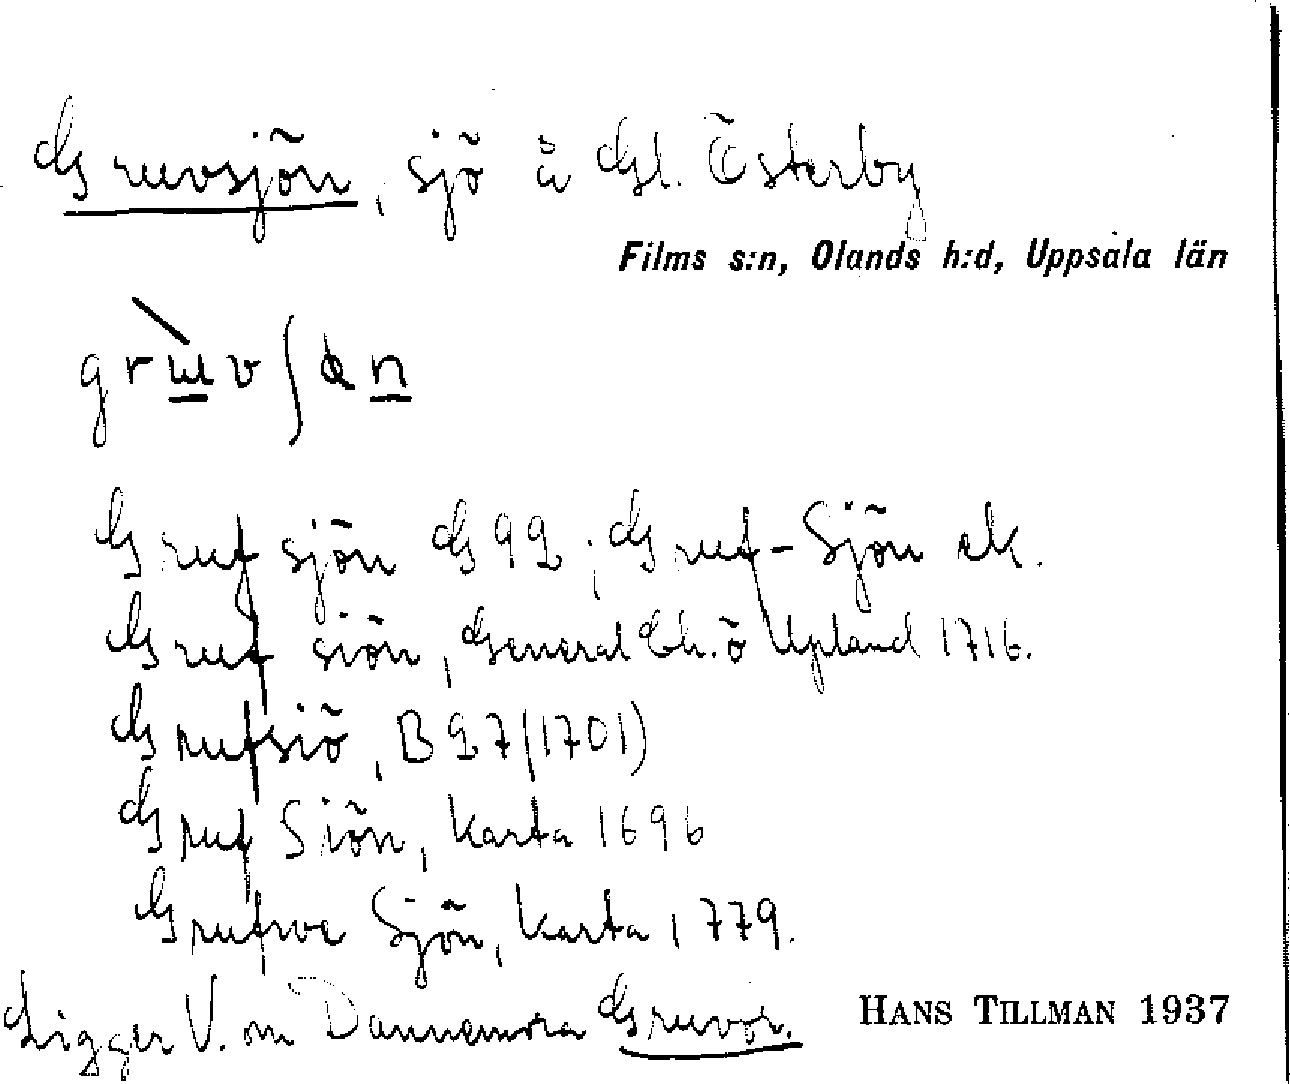 Gruvsjön, sjö å Gl. Österby
Films s:n, Olands h:d, Uppsala län
Gruf sjön G92; Gruf-Sjön ek.
Gruf siön, General Ch. ö Upland 1716.
Grufsiö, B27(1701)
Gruf Siön, karta 1696
Grufwe Sjön, karta 1779.
Ligger V. om Dannemora Gruvor.
HANS TILLMAN 1937